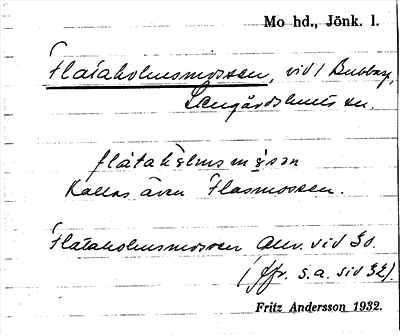 Mo hd., Jönk. l.
Flataholmsmossen, vid 1 Bubbarp,
Lengårdshult sn.
flàtahòlmsmȯsən
Kallas även Flasmossen.
Flataholmsmossen Anv. vid 30.
(Jfr. s.a. sid 32).
Fritz Andersson 1932.